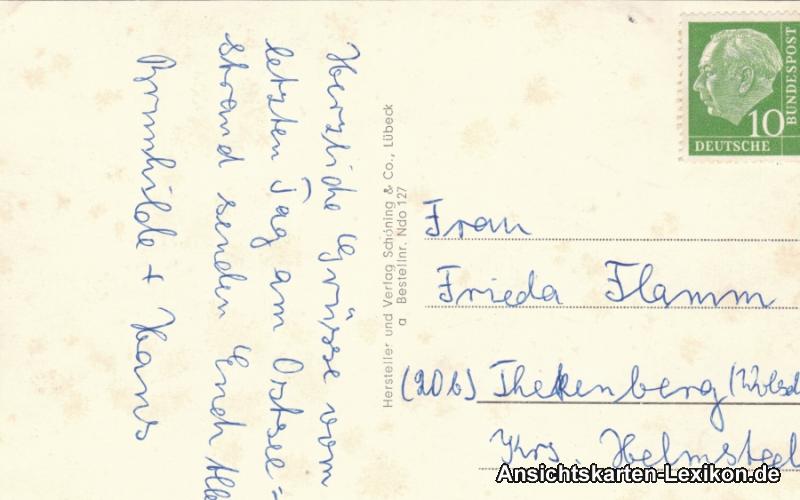 Herzliche Grüsse vom
letzten Tag am Ostsee=
strand senden Euch Alle
Brunhilde + Hans
Hersteller und Verlag Schöning & Co., Lübeck
a Bestellnr. Ndo 127
10
DEUTSCHE
BUNDESPOST
Frau
Frieda Flamm
(20b) Thekenberg
Krs. Helmsted
Ansichtskarten-Lexikon.de